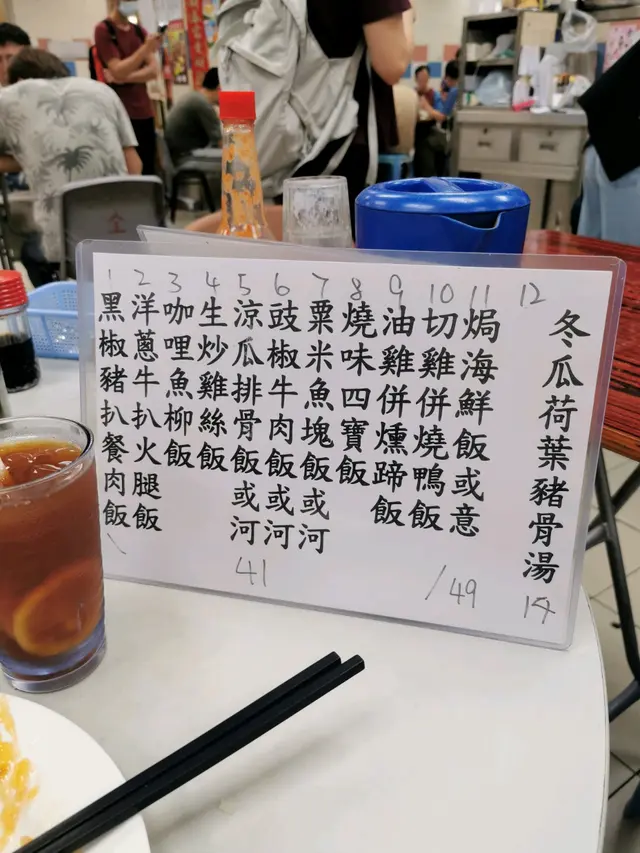 1 黑椒豬扒餐肉飯
2 洋蔥牛扒火腿飯
3 咖哩魚柳飯
4 生炒雞絲飯
5 涼瓜排骨飯或河
6 豉椒牛肉飯或河
7 粟米魚塊飯或河
8 燒味四寶飯
9 油雞併燻蹄飯
10 切雞併燒鴨飯
11 焗海鮮飯或意
12
冬瓜荷葉豬骨湯
41
/49
14